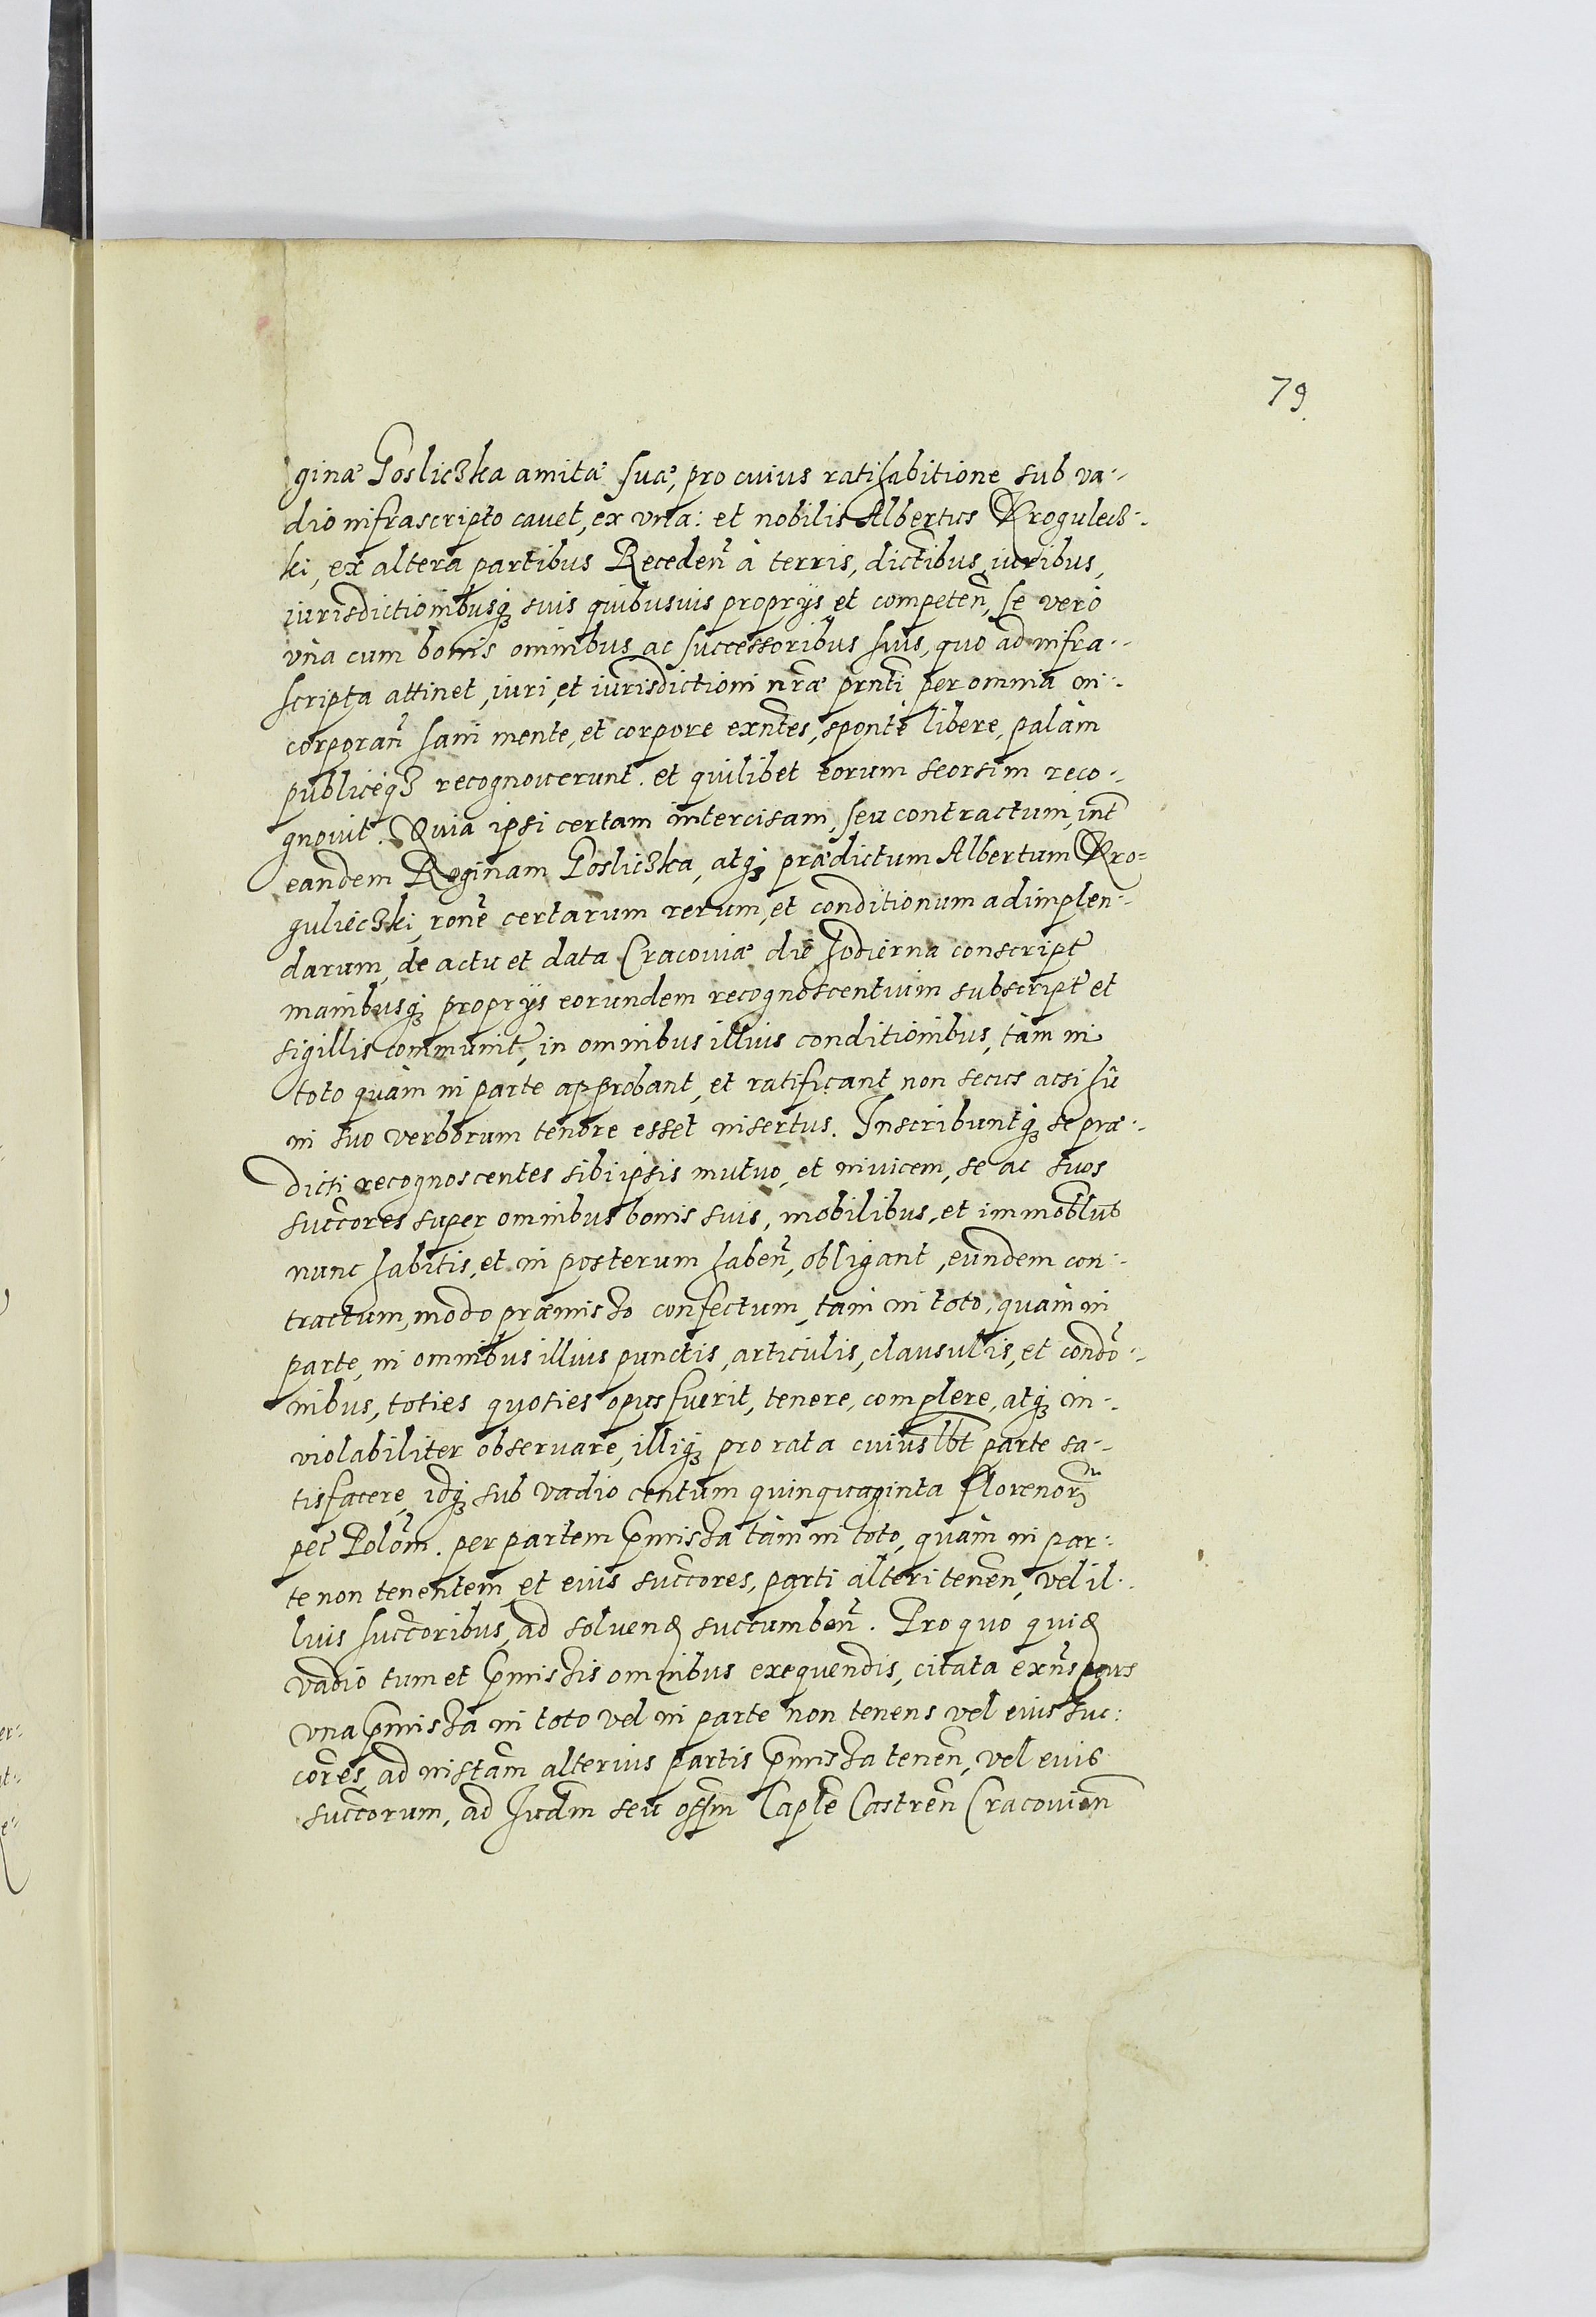 79.
ginæ Gosliczka amitæ suæ, pro cuius ratihabitione sub va-
dio infrascripto cauet, ex vna: et nobilis Albertus Krogulecz-
ki, ex altera partibus Receden̄ à terris, dictibus, iuribus,
iurisdictionibusq; suis quibusuis proprÿs et competen̄, se verò
vnà cum bonis omnibus ac successoribus suis, quo ad infra-
scripta attinet, iuri, et iurisdictioni nr̄æ prn̄ti per omnia in-
corporan̄ sani mente, et corpore exn̄tes, spontè libere, palàm
publiceq3 recognouerunt. et quilibet eorum seorsim reco-
gnouit. Quia ipsi certam intercisam, seu contractum, int̄
eandem Reginam Gosliczka, atq; prædictum Albertum Kro-
guliećzki, ron̄e certarum rerum, et conditionum adimplen-
darum, de actu et data Cracouiæ die hodierna conscript̄
manibusq; proprÿs eorundem recognoscentium subscript̄ et
sigillis communit̄, in omnibus illius conditionibus, tàm in
toto quàm in parte approbant, et ratificant non secus acsi hîc
in suo verborum tenore esset insertus. Inscribuntq; se præ-
dicti recognoscentes sibi ipsis mutuo, et inuicem, se ac suos
succ̄ores super omnibus bonis suis, mobilibus, et immobl̄ibus
nunc habitis, et in posterum haben̄, obligant, eundem con-
tractum, modo præmisso confectum, tàm in toto, quàm in
parte, in omnibus illius punctis, articulis, clausulis, et condō-
nibus, toties quoties opus fuerit, tenere, complere, atq; in-
violabiliter obseruare, illiq; pro rata cuiusl̄bt parte sa-
tisfacere, idq; sub vadio centum quinquaginta florenor̄
pec̄ Polōm. per partem p̄missa tàm in toto, quàm in par-
te non tenentem et eius succ̄ores, parti alteri tenen̄, vel il-
lius succ̄oribus, ad soluend̄ succumben̄. Pro quo quid̄
vadio tum et p̄missis omnibus exequendis, citata exn̄s pars
vna p̄missa in toto vel in parte non tenens vel eius suc:
cores, ad instām alterius partis p̄missa tenen̄, vel eius
succ̄orum, ad Jud̄m seu off̄m Capl̄e Castren̄ Cracouien̄